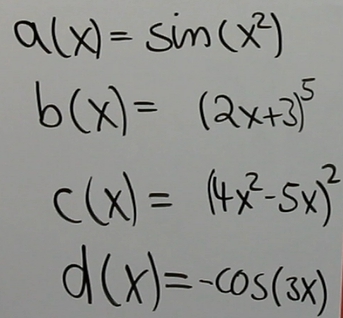 a(x) = sin(x²)
b(x) = (2x+3)⁵
c(x) = (4x²-5x)²
d(x) = -cos(3x)